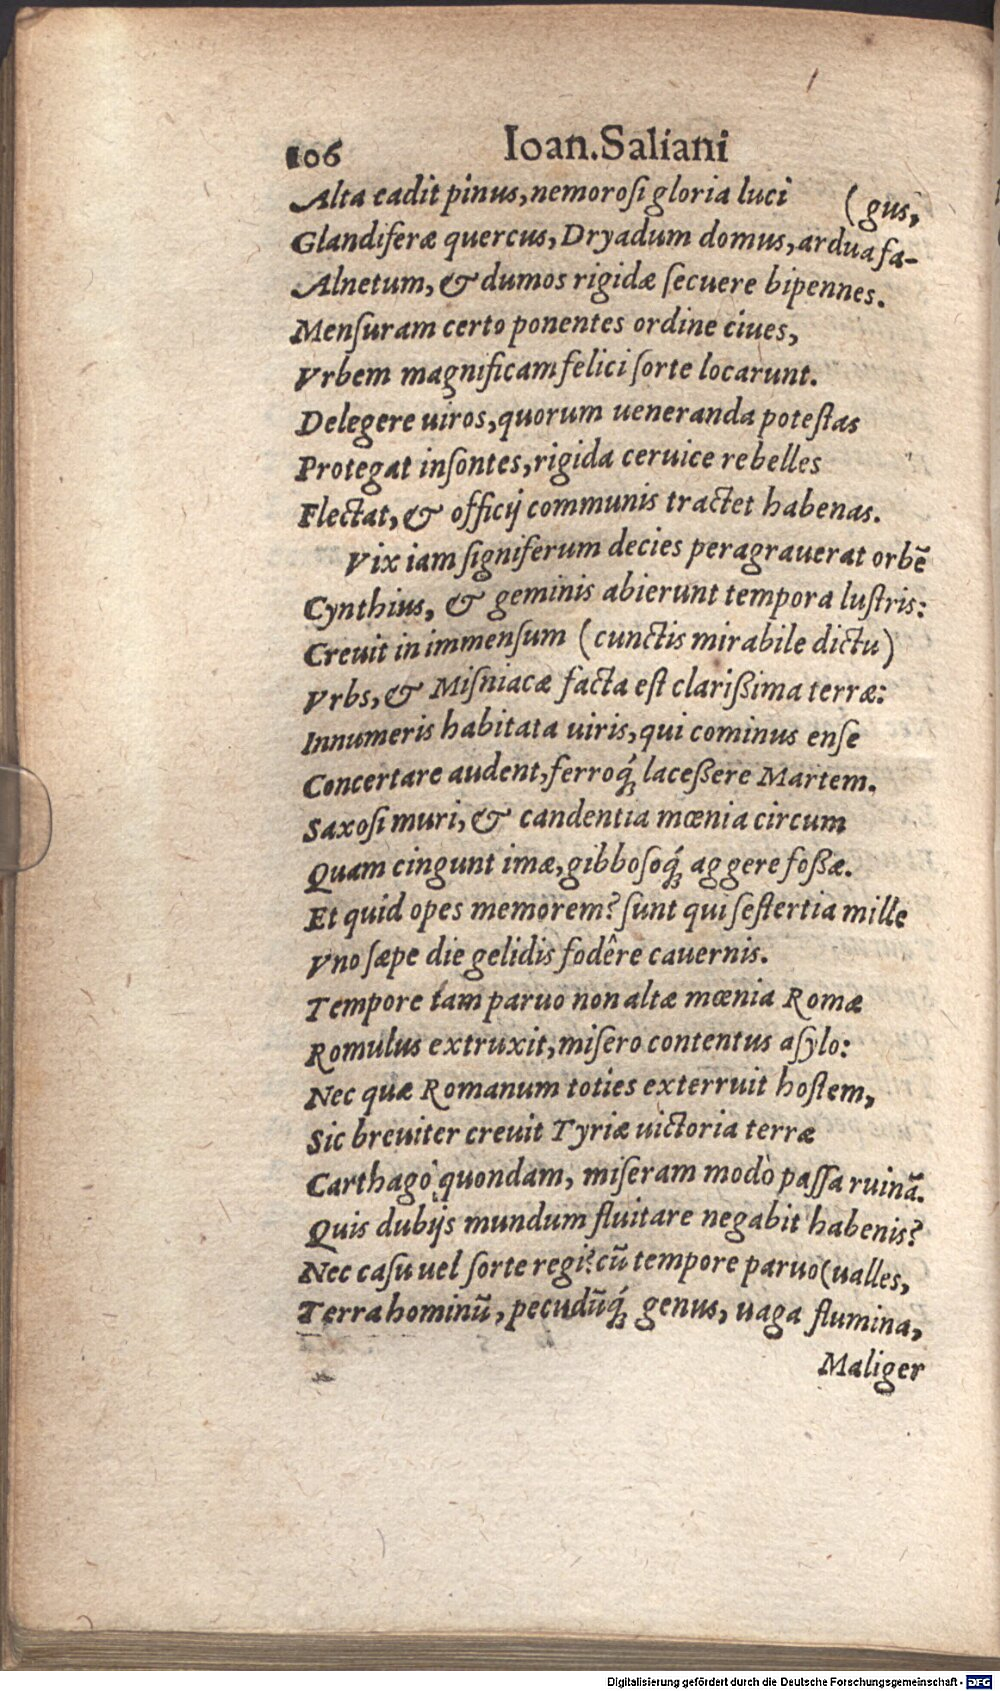 106 Ioan. Saliani
Alta cadit pinus, nemorosi gloria luci (gus,
Glandiferæ quercus, Dryadum domus, ardua fa-
Alnetum, & dumos rigidæ secuere bipennes.
Mensuram certo ponentes ordine ciues,
Vrbem magnificam felici sorte locarunt.
Delegere uiros, quorum ueneranda potestas
Protegat insontes, rigida ceruice rebelles
Flectat, & officij communis tractet habenas.
Vix iam signiferum decies peragrauerat orbē
Cynthius, & geminis abierunt tempora lustris:
Creuit in immensum (cunctis mirabile dictu)
Vrbs, & Misniacæ facta est clarißima terræ:
Innumeris habitata uiris, qui cominus ense
Concertare audent, ferroq́; laceßere Martem.
Saxosi muri, & candentia mœnia circum
Quam cingunt imæ, gibbosoq́; aggere foßæ.
Et quid opes memorem? sunt qui sestertia mille
Vno sæpe die gelidis fodêre cauernis.
Tempore tam paruo non altæ mœnia Romæ
Romulus extruxit, misero contentus asylo:
Nec quæ Romanum toties exterruit hostem,
Sic breuiter creuit Tyriæ uictoria terræ
Carthago quondam, miseram modò passa ruinā.
Quis dubijs mundum fluitare negabit habenis?
Nec casu uel sorte regi? cū tempore paruo (ualles,
Terra hominū, pecudūq́; genus, uaga flumina,
Maliger
Digitalisierung gefördert durch die Deutsche Forschungsgemeinschaft - DFG